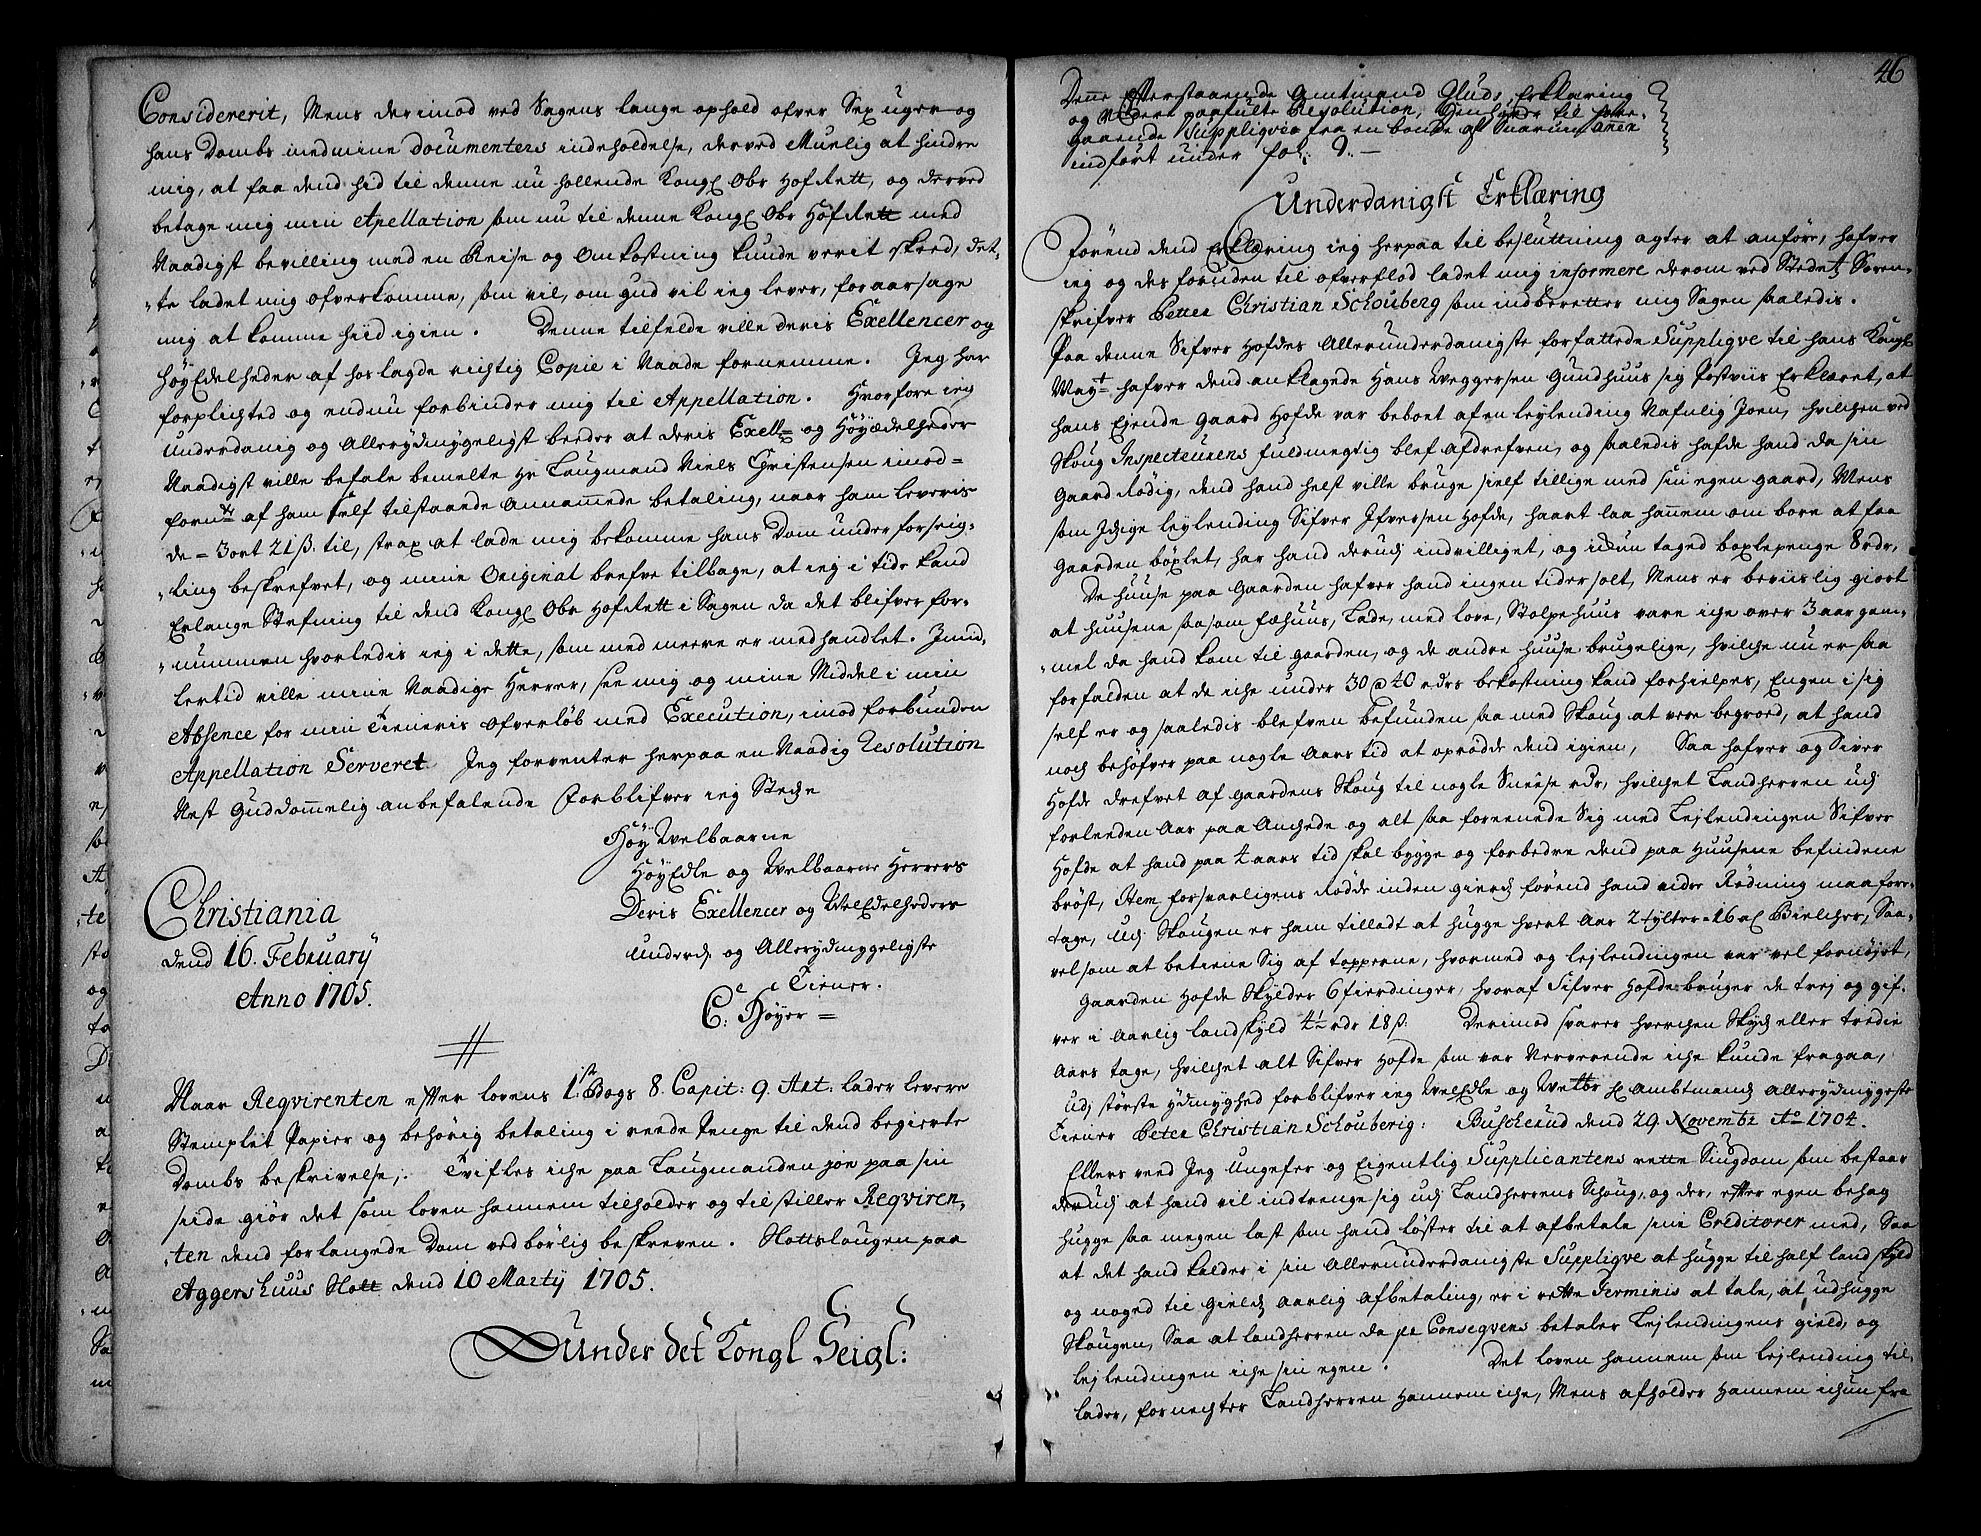 Considererit, Mens derimod ved Sagens lange ophold ofver Sex uger og
hans Dombs med mine documenters indeholdelse, derved Muelig at hindre
mig, at faa dend hid til denne nu hollende Kongl Obr Hof Rett, og derved
betage mig min Apellation som nu til denne Kongl Obr Hof Rett med
Naadigst bevilling med en Reise og Omkostning kunde verit skeed, det-
te ladet mig ofverkomme, som vil, om gud vil ieg lever, foraarsage
mig at komme hiid igien. Denne tilfelde ville deris Exellencer og
HöyEdelheder af hoslagde rigtig Copie i Naade fornemme. Jeg har
forplichted og endnu forbinder mig til Appellation. Hvorfore ieg
underdanig og Allerydmygeligst beeder at deris Exell: og Höyædelheder
Naadigst ville befale bemelte Hr Laugmand Niels Christensen imod
forne af ham self tilstaande Annammede betaling, naar ham leveris
de 3 ort 21 ß til, strax at lade mig bekomme hans Dom under forseig-
ling beskrefvet, og mine Original brefve tilbage, at ieg i tide kand
Erlange Stefning til dend Kongl Obr Hof Rett i Sagen da det blifver for-
nummen hvorledis ieg i dette, som med meere er medhandlet. Imid-
lertid ville mine Naadige Herrer, see mig og mine Middel i min
Absence for min Tieneris ofverløb med Execution, imod forbunden
Appellation Serveret. Jeg forventer herpaa en Naadig Resolution
Nest Guddommelig anbefalende Forblifver ieg Stedse
Höy Welbaarne
HöyEdle og Welbaarne Herrers
Deris Exellencer og WelEdelheders
underd: og Allerydmygeligste
Tiener.
C: Höyer
Christiania
dend 16. February
Anno 1705.
Naar Reqvirenten efter lovens 1ste Bogs 8. Capit: 9. Art: lader levere
Stemplet Papier og behörig betaling i reede Penge til dend begierte
Dombs beskrivelse; Tvifles iche paa Laugmanden jo paa sin
side giör det som loven hannem tilholder og tilstiller Reqviren-
ten dend forlangede Dom ved börlig beskreven. Slottslougen paa
Aggershuus Slott dend 10 Marty 1705.
Under det Kongl Seigl:
46
Denne Efterstaaende Amtmand Gluds Erklæring
og paafulte Resolution, Henhører til fore-
gaaende Suppliqve fra en bonde af
indfört under fol: 9.
Underdanigst Erklæring
Förend dend Erklæring ieg herpaa til besluttning agter at anföre, hafver
ieg og des foruden til ofverflod ladet mig informere derom ved Stedetz Soren-
skrifver Peter Christian Schouberg som indberetter mig Sagen saaledis.
Paa denne Sifver Hofdes Allerunderdanigste forfattede Suppliqve til hans Kongl
Mayt hafver dend anklagede Hans Weggersen Gundhuus sig Postviis Erklæret, at
hans Ejende Gaard Hofde var beboet af en leylending Nafnlig Joen, hvilchen ved
Skoug Inspecteurens fuldmegtig blef afdrefven, og saaledis hafde hand da sin
Gaard Ködig, dend hand helst ville bruge sielf tillige med sin egen gaard, Mens
som Idige leylending Sifver Ifversen Hofde, haart laa hannem om bore at faa
Gaarden böxlet, har hand derudj indvilliget, og ickun taged boxlepenge 8 rdr,
De huuse paa Gaarden hafver hand ingen tider solt, Mens er beviislig giort
at huusene saasom Fæhuus, Lade, med love, Stolpehuus vare iche over 3 aar gam-
mel da hand kom til gaarden, og de andre huuse brugelige, hvilche nu er saa
forfalden at de iche under 30 @ 40 rdrs bekostning kand forhielpes, Engen i sig
self er og saaledis blefven befunden saa med Skoug at vere begroed, at hand
noch behöfver paa nogle Aars tid at oprödde dend igien, Saa hafver og Siver
Hofde drefvet Af Gaardens Skoug til nogle Sneese rdr, hvilchet Landherren udj
forleeden Aar paa Anchede og alt saa foreenede Sig med Leylendingen Sifver
Hofde at hand paa 4 aars tid skal bygge og forbedre dend paa Huusene befindene
bröst, Item forsvarligens Rödde inden giers förend hand videre Rödning maa fore-
tage, Udj Skougen er ham tilladt at hugge hvert Aar 2 tylter 16 al Bielcher, Saa-
velsom at betiene Sig af topperne, hvormed og leylendingen var vel fornöyet,
Gaarden Hofde Skylder 6 fierdinger, hvoraf Sifver Hofde bruger de trej og gif-
ver i Aarlig landskyld 4½ rdr 18 ß. Derimod svarer hverchen Skyds eller tredie
Aars tage, hvilchet alt Sifver Hofde som var Nerverende iche kunde fragaa,
Udj störste ydmyghed forblifver ieg WelEdle og Welbr H Ambtmands Allerydmygeste
Tiener Peter Christian Schouberg: Buscherud dend 29. Novembr Ao 1704.
Ellers veed Jeg Ungefer og Eigentlig Supplicantens rette Siugdom som bestaar
derudj at hand vil indtrenge sig udj Landherrens Skoug, og der, efter egen behag
hugge saa megen last som hand löster til at afbetale sine Creditorer med, Saa
at det hand kalder i sin Allerunderdanigste Suppliqve at hugge til half land skyld
og noged til Gields aarlig Afbetaling, er i rette Terminis at tale, at udhugge
Skougen, Saa at landherren da pr Conseqvens betaler Leylendingens gield, og
leylendingen iche sin egen. Det loven hannem som leylending til-
lader, fornechter Landherren Hannem iche, Mens afholder Hannem ickun fra